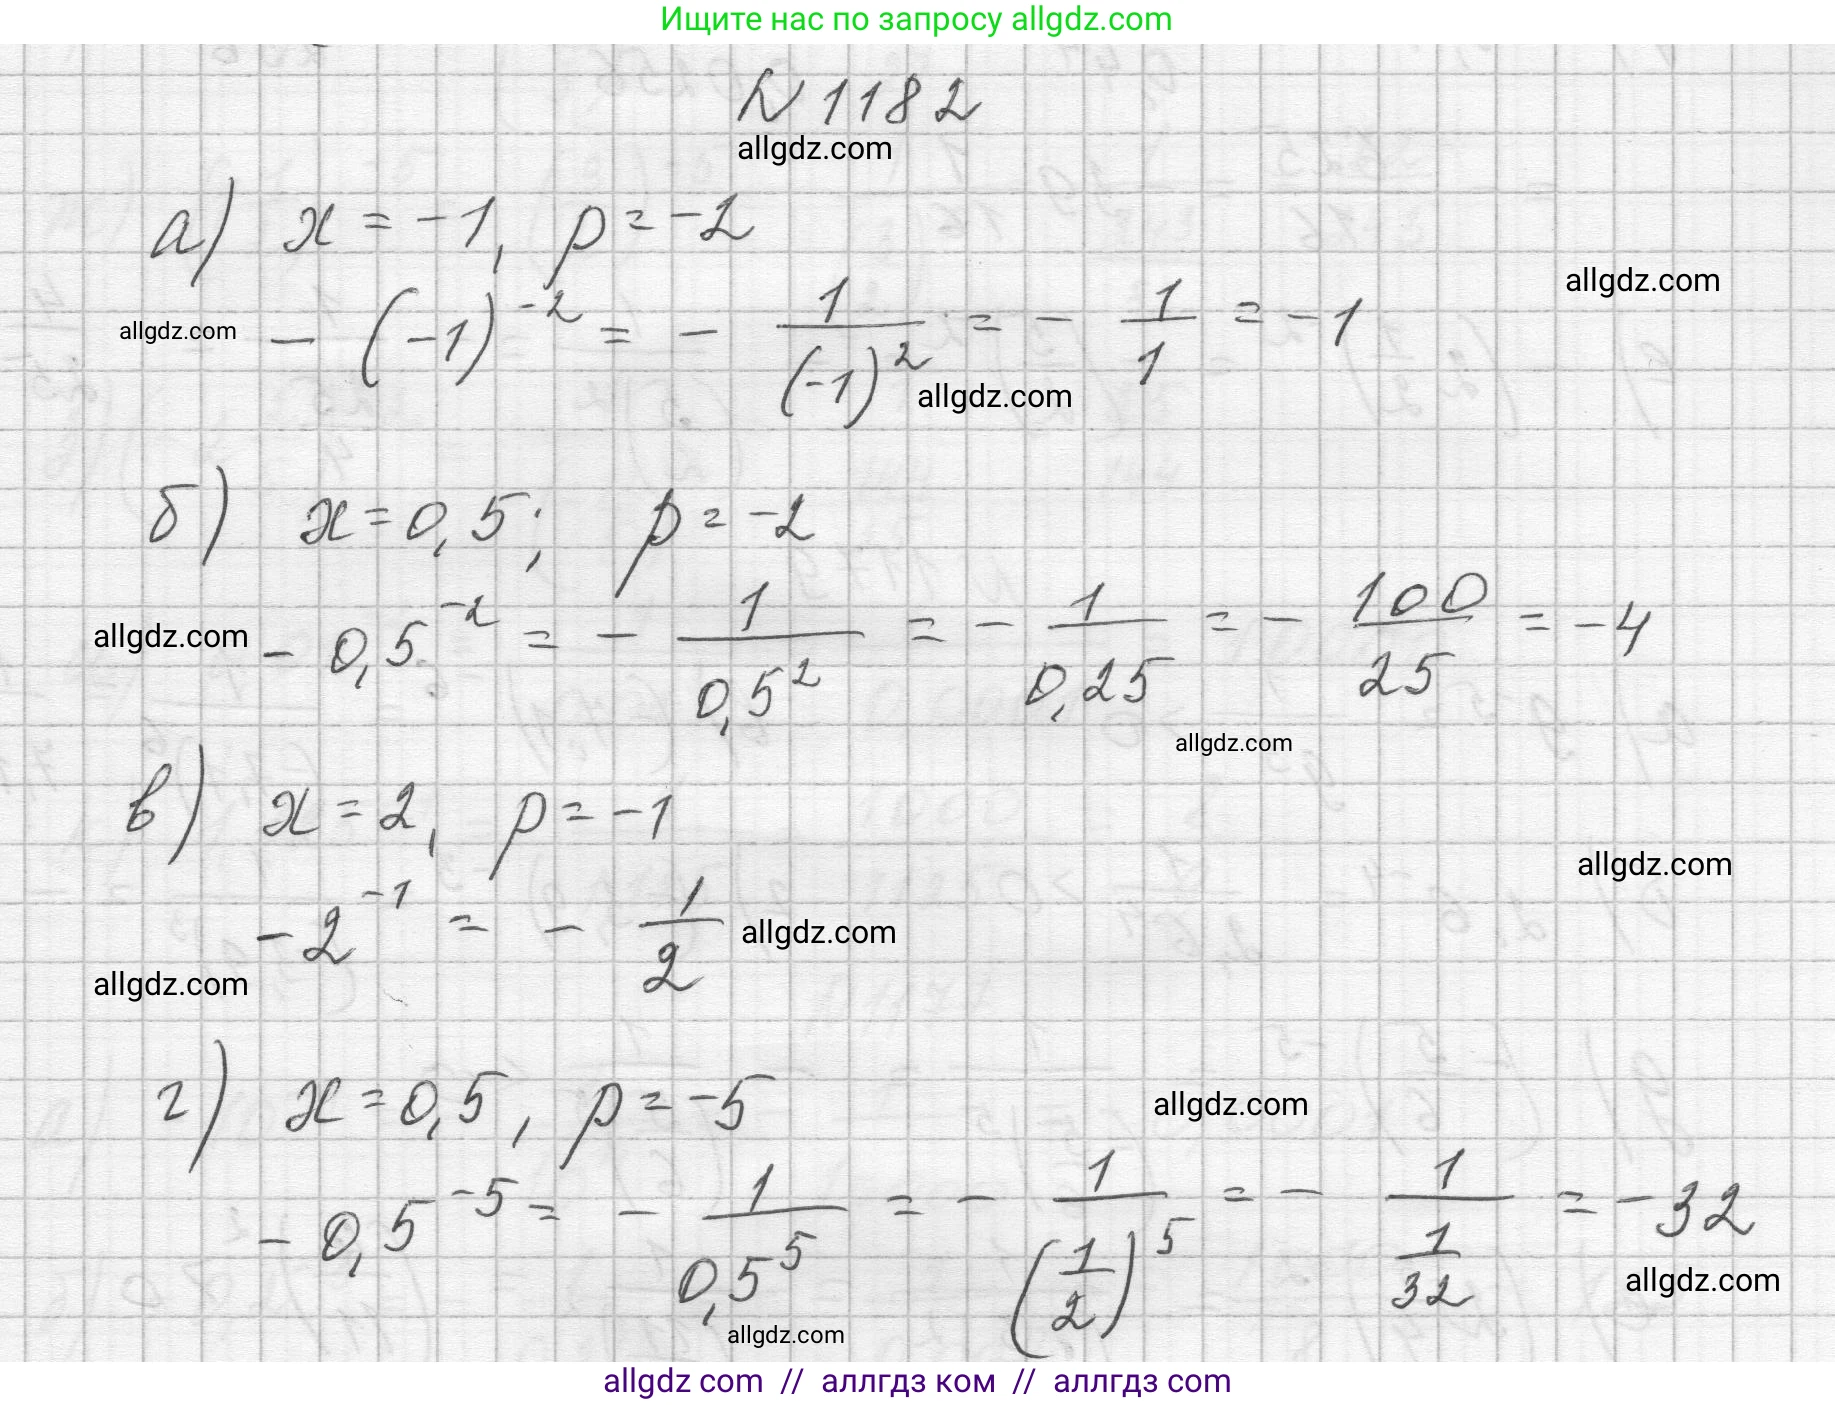 Ищите нас по запросу allgdz.com
№ 1182
allgdz.com
а) x = -1, p = -2
allgdz.com
-(-1)^{-2} = - \frac{1}{(-1)^2} = - \frac{1}{1} = -1
allgdz.com
allgdz.com
б) x = 0,5; p = -2
allgdz.com
- 0,5^{-2} = - \frac{1}{0,5^2} = - \frac{1}{0,25} = - \frac{100}{25} = -4
allgdz.com
в) x = 2, p = -1
allgdz.com
-2^{-1} = - \frac{1}{2}
allgdz.com
allgdz.com
г) x = 0,5, p = -5
allgdz.com
- 0,5^{-5} = - \frac{1}{0,5^5} = - \frac{1}{(\frac{1}{2})^5} = - \frac{1}{\frac{1}{32}} = -32
allgdz.com
allgdz.com
allgdz com // аллгдз ком // аллгдз com